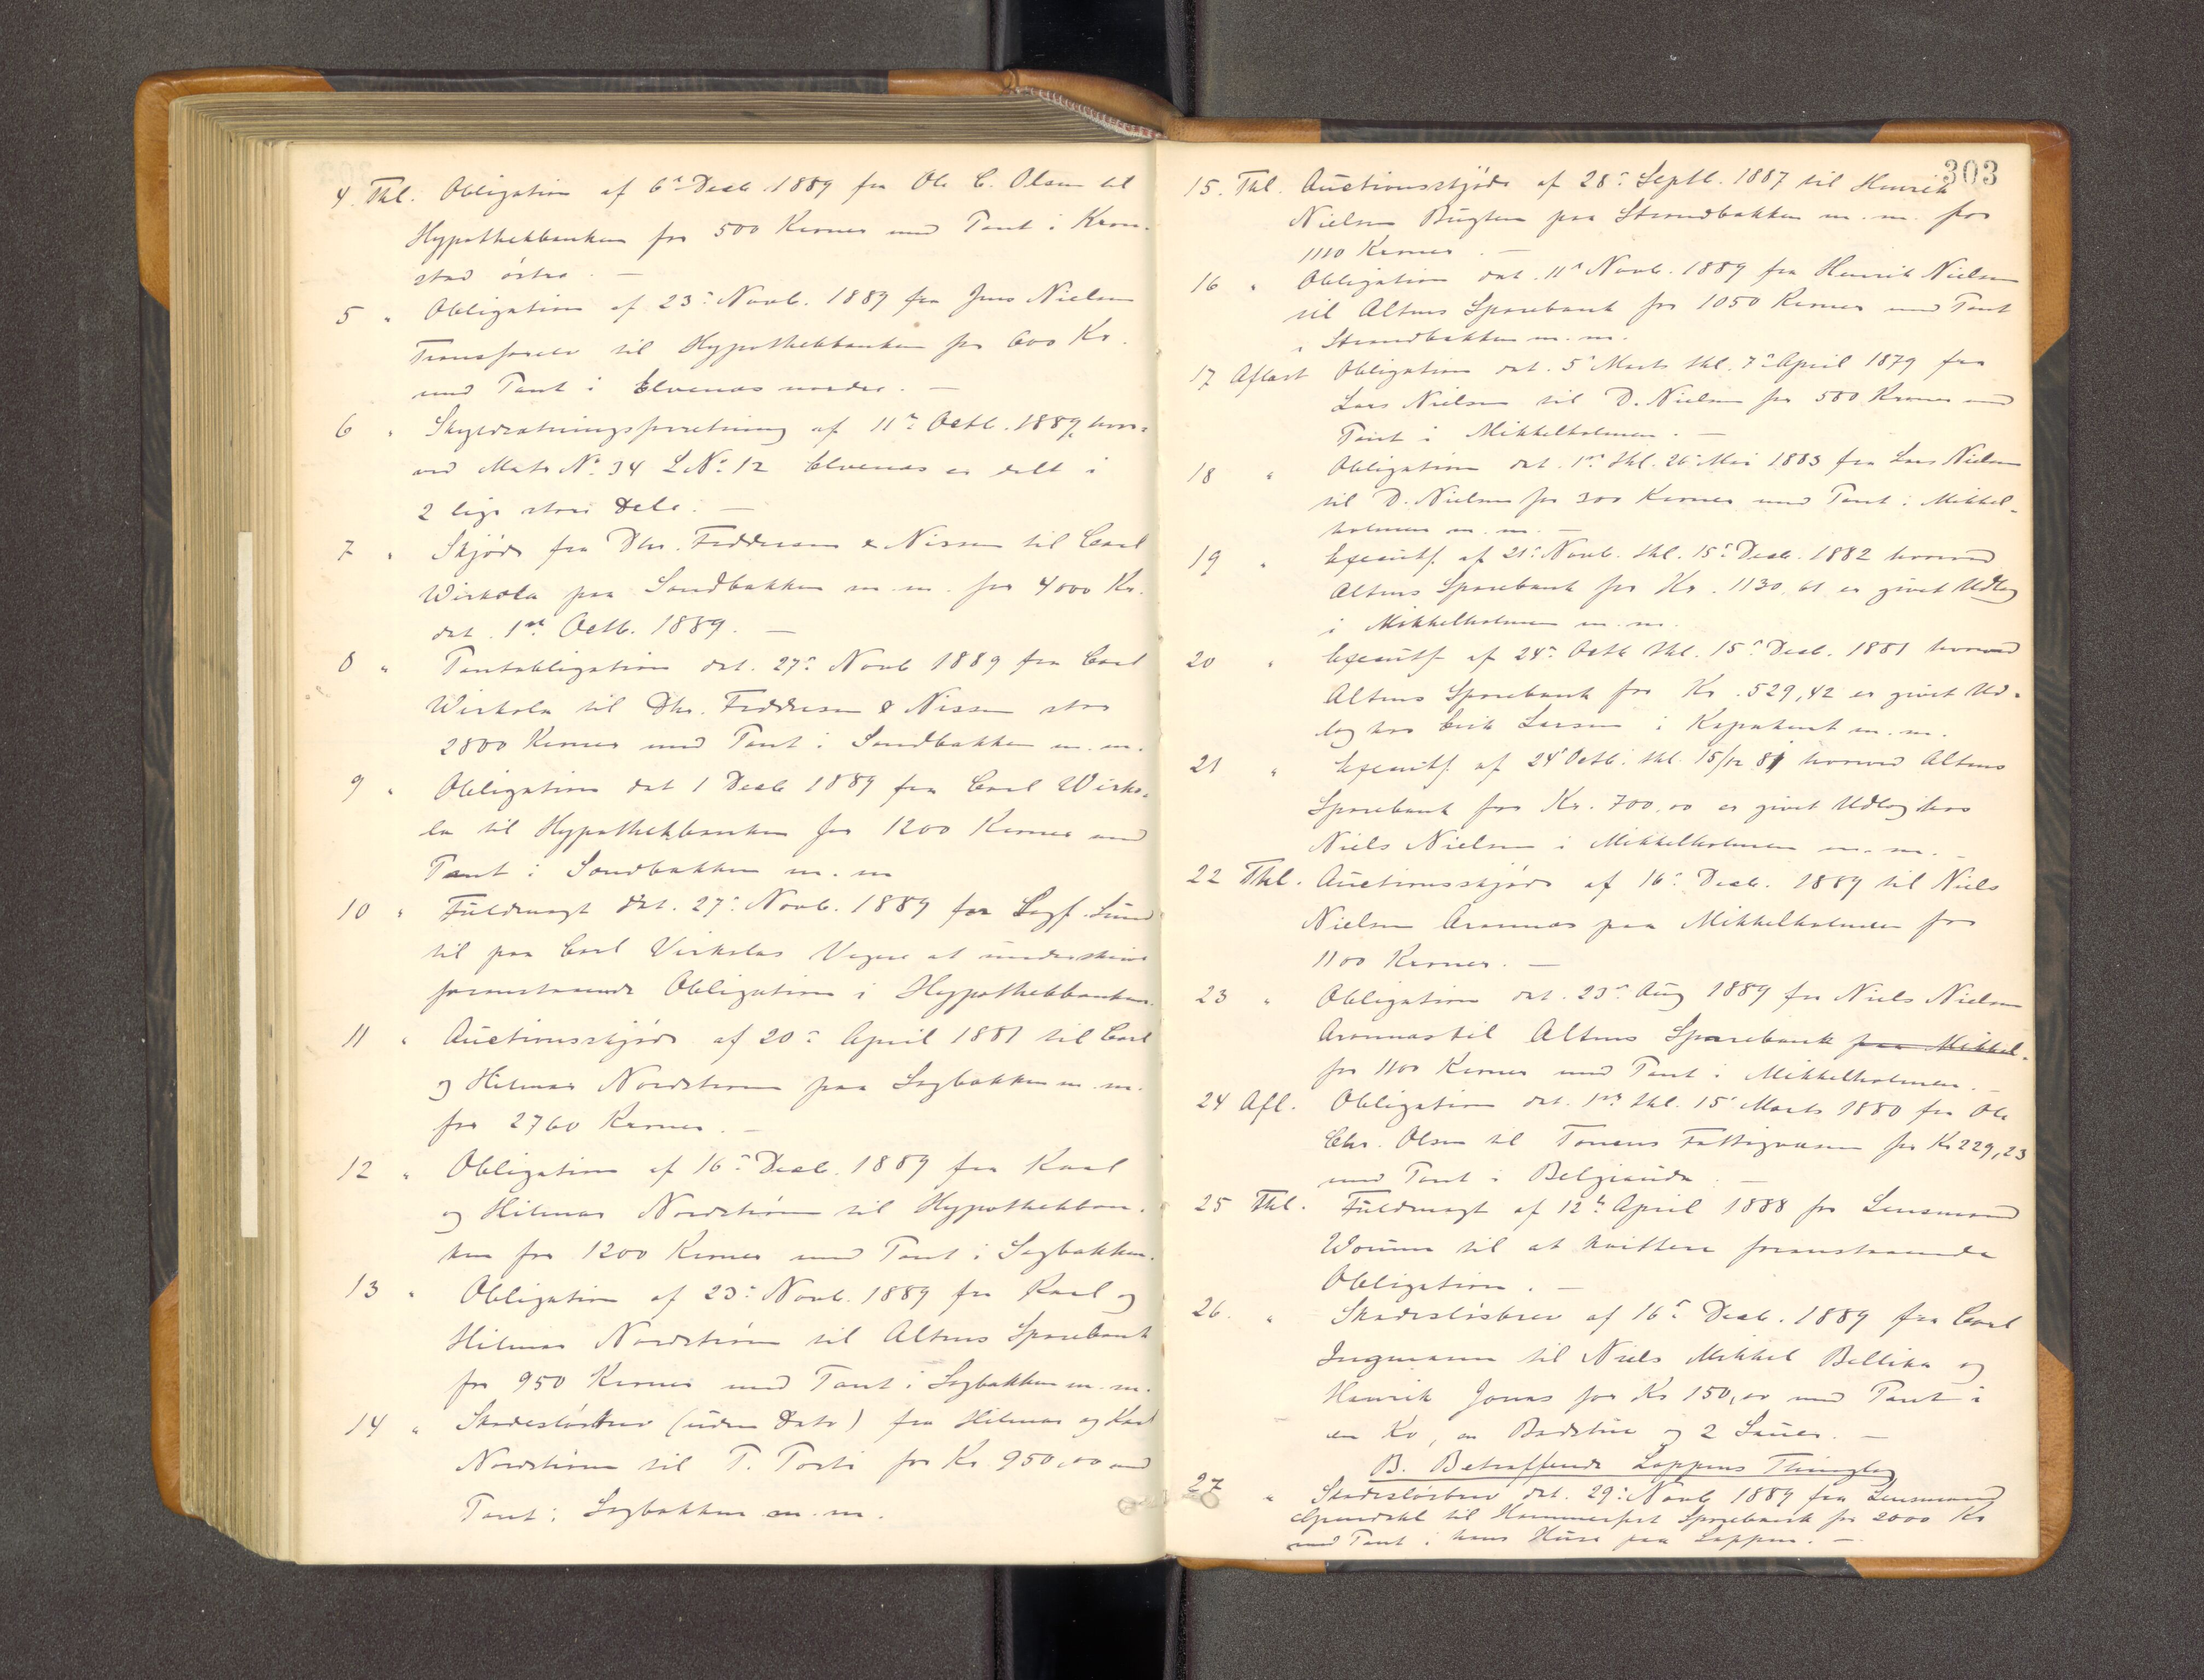 4. Thl. Obligation af 6te Decb. 1889 fra Ole C. Olsen til
Hypothekbanken for 500 Kroner med Pant i Kron-
stad östre. —
5 " Obligation af 23de Novb. 1889 fra Jens Nielsen
Transfarelv til Hypothekbanken for 600 Kr.
med Pant i Elvenæs nordre. —
6 " Skylddelingsforretning af 11te Octb. 1889, hvor-
ved Matr No. 34 L No. 12 Elvenæs er delt i
2 lige store Dele. —
7 " Skjöde fra Dhr. Feddersen & Nissen til Carl
Wirkola paa Sandbakken m. m. for 4000 Kr.
dat. 1ste Octb. 1889. —
8 " Pantobligation dat. 27de Novb 1889 fra Carl
Wirkola til Dhr. Feddersen & Nissen stor
2800 Kroner med Pant i Sandbakken m. m.
9 " Obligation dat 1 Decb 1889 fra Carl Wirko-
la til Hypothekbanken for 1200 Kroner med
Pant i Sandbakken m. m
10 " Fuldmagt dat. 27de Novb. 1889 for Sagf. Lund
til paa Carl Virkolas Vegne at underskrive
foranstaaende Obligation i Hypothekbanken.
11 " Auctionsskjöde af 20de April 1881 til Carl
og Hilmar Nordström paa Sagbakken m. m.
for 2760 Kroner. —
12 " Obligation af 16de Decb. 1889 fra Karl
og Hilmar Nordström til Hypothekban-
ken for 1200 Kroner med Pant i Sagbakken.
13 " Obligation af 23de Novb. 1889 fra Karl og
Hilmar Nordström til Altens Sparebank
for 950 Kroner med Pant i Sagbakken m. m.
14 " Skadeslösbrev (uden Dato) fra Hilmar og Karl
Nordström til P. Posti for Kr. 950,00 med
Pant i Sagbakken m. m.
303
15. Thl. Auctionsskjöde af 28de Septb. 1887 til Henrik
Nielsen Bugten paa Strandbakken m. m. for
1110 Kroner. —
16 " Obligation dat. 11te Novb. 1889 fra Henrik Nielsen
til Altens Sparebank for 1050 Kroner med Pant
i Strandbakken m. m.
17 Aflæst Obligation dat. 5te Marts thl. 7de April 1879 fra
Lars Nielsen til D. Nielsen for 580 Kroner med
Pant i Mikkelholmen. —
18 " Obligation dat. 1ste thl. 26de Mai 1883 fra Lars Nielsen
til D. Nielsen for 300 Kroner med Pant i Mikkel-
holmen m. m. —
19 " Executf. af 21de Novb. thl. 15de Decb. 1882 hvorved
Altens Sparebank for Kr. 1130,61 er givet Udlæg
i Mikkelholmen m. m.
20 " Executf. af 24de Octb thl. 15de Decb. 1881 hvorved
Altens Sparebank for Kr. 529,42 er givet Ud-
læg hos Erik Larsen i m. m.
21 " Executf. af 24de Octb. thl. 15/12 81 hvorved Altens
Sparebank for Kr. 700,00 er givet Udlæg hos
Niels Nielsen i Mikkelholmen m. m. —
22 Thl. Auctionsskjöde af 16de Decb. 1889 til Niels
Nielsen Aronnæs paa Mikkelholmen for
1100 Kroner. —
23 " Obligation dat. 23de Aug 1889 fra Niels Nielsen
Aronnæs til Altens Sparebank paa Mikkel-
for 1100 Kroner med Pant i Mikkelholmen. —
24 Afl. Obligation dat. 1ste thl. 15de Marts 1880 fra Ole
Chr. Olsen til Fattigvæsen for Kr 229,23
med Pant i . —
25 Thl. Fuldmagt af 12te April 1888 for Lensmand
til at kvittere foranstaaende
Obligation. —
26. " Skadeslösbrev af 16de Decb. 1889 fra Carl
Ingmann til Niels Mikkel Bellika og
Henrik Jonas for Kr 150,00 med Pant i
en Ko, en Badstue og 2 Sauer. —
B. Betræffende Loppens Thinglag
27 " Skadeslösbrev dat. 29de Novb 1889 fra Lensmand
til Hammerfest Sparebank for 2000 Kr
med Pant i hans Huse paa Loppen. —